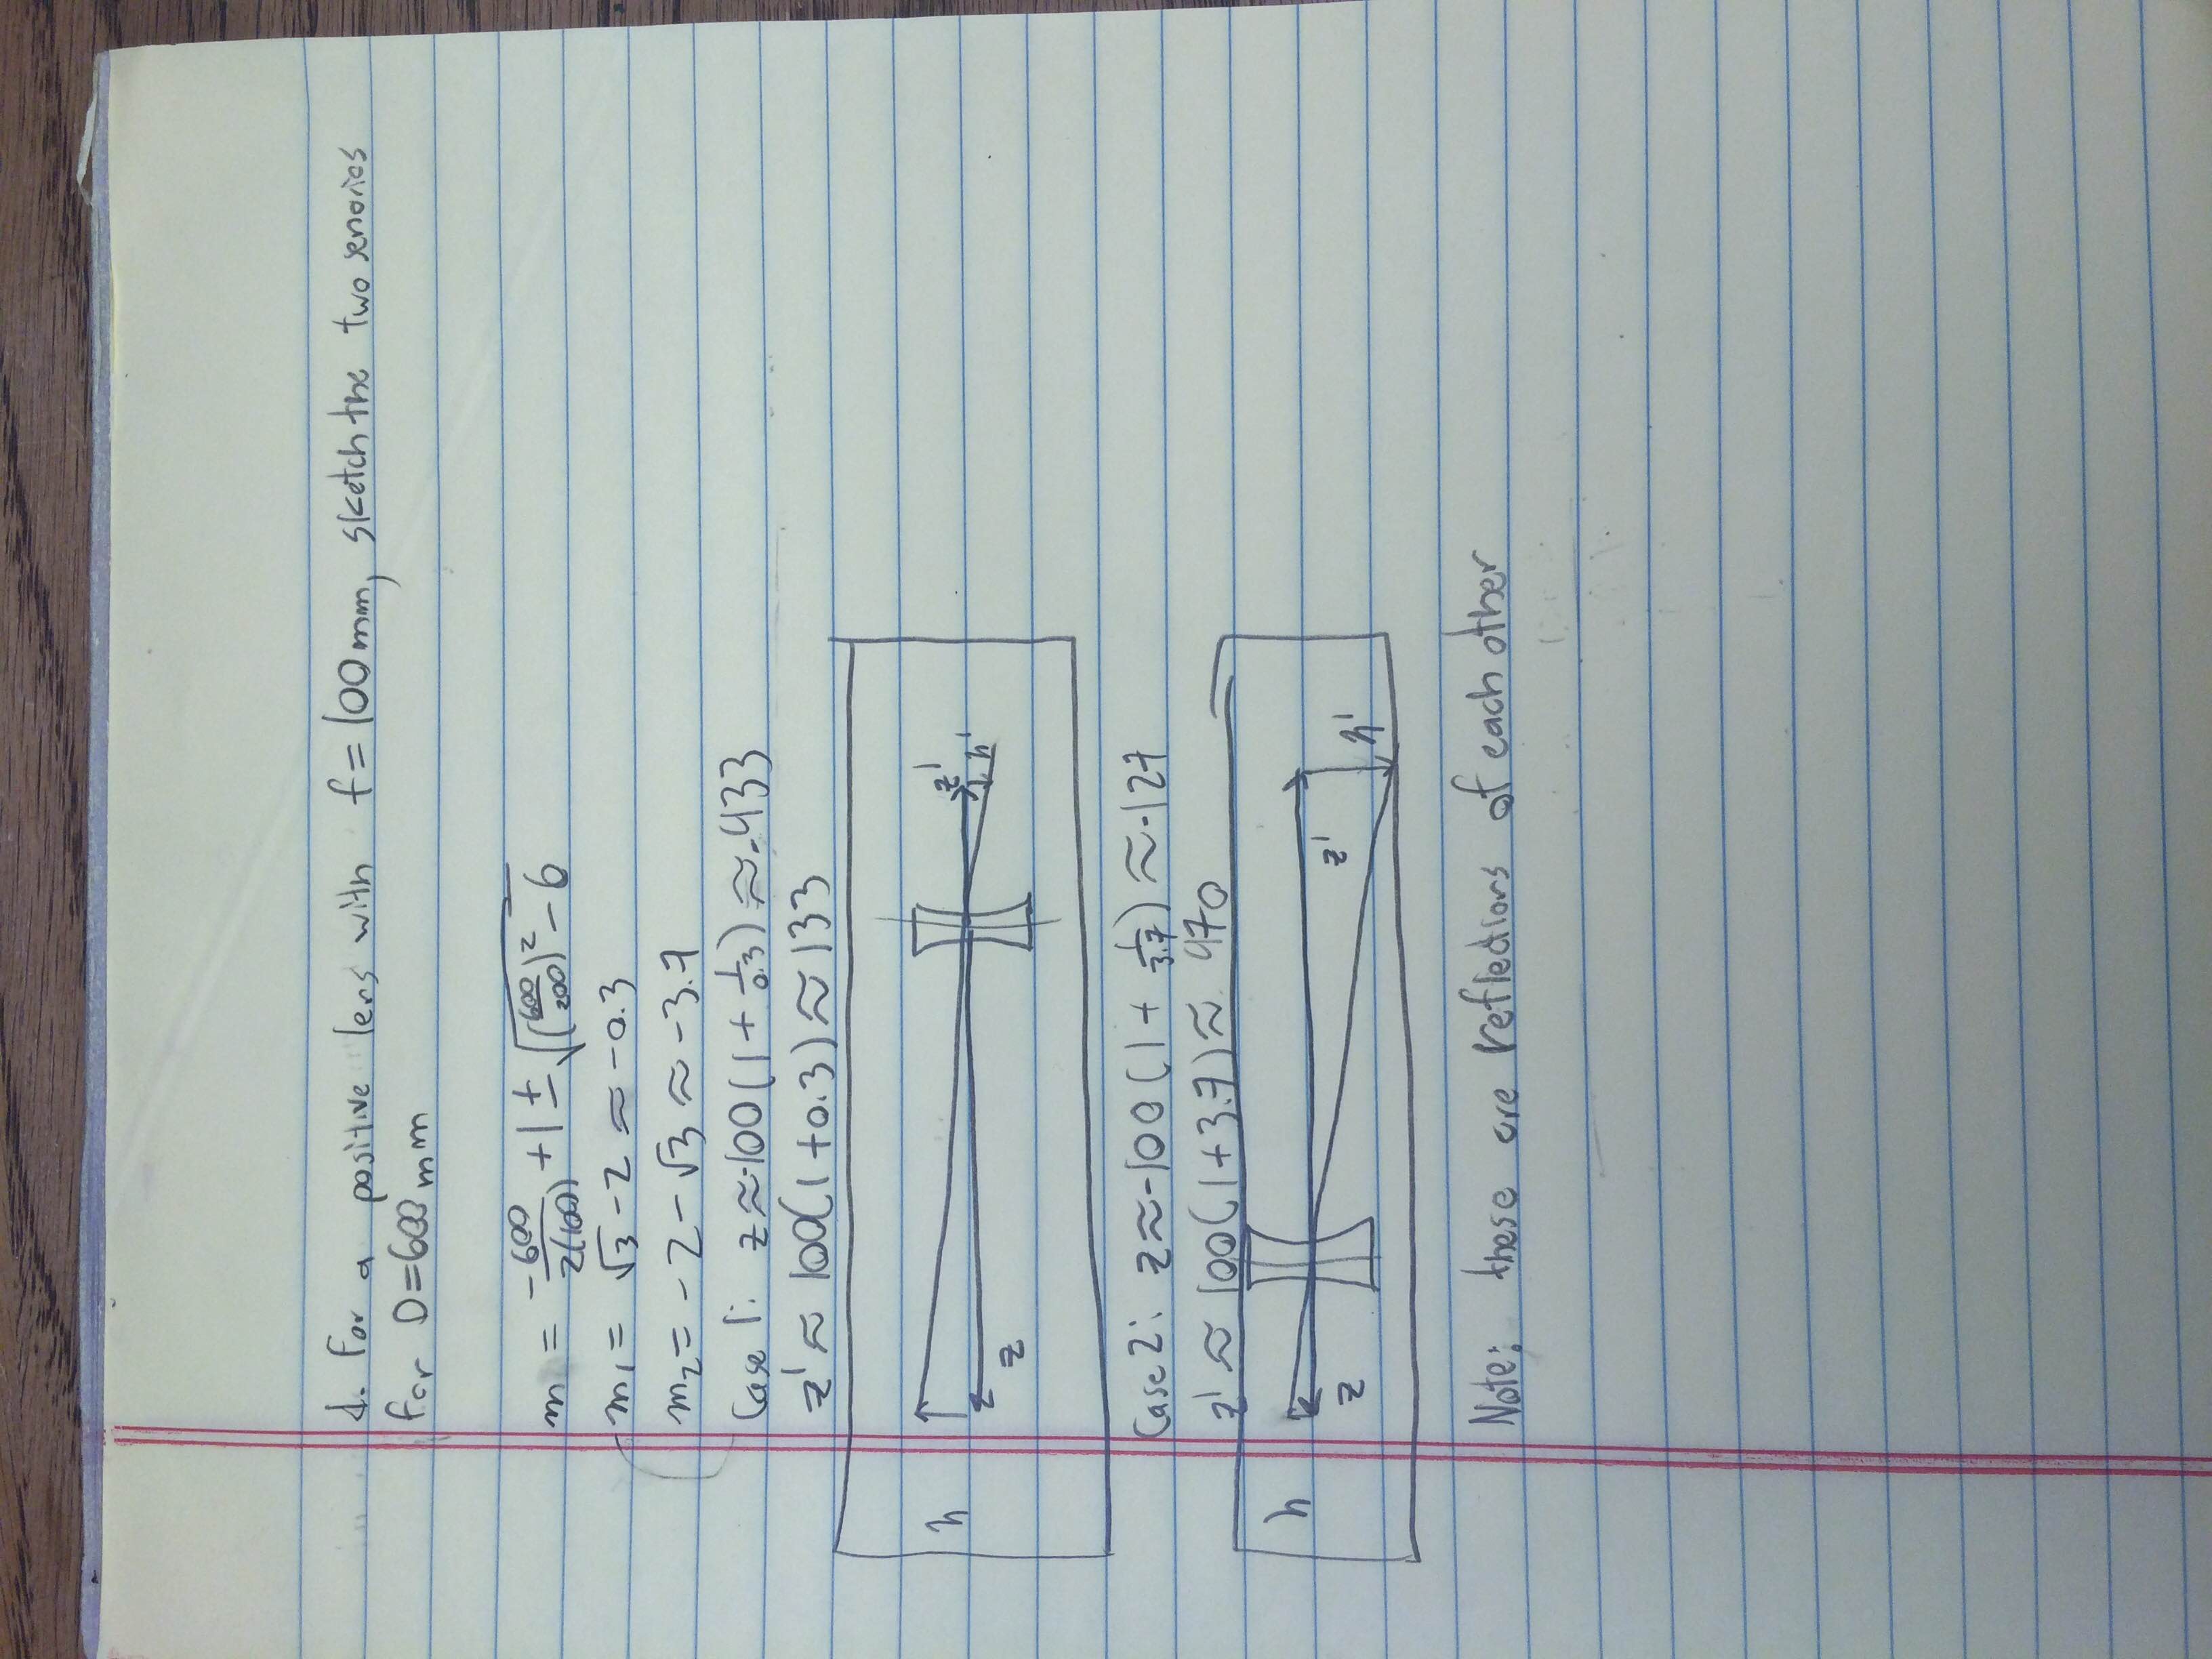 d. For a positive lens with f = 100mm, sketch the two senarios
for D=600mm
m = -600/2(100) + 1 ± √((600/200)² - 6
m₁ = √3 - 2 ≈ -0.3
m₂ = -2 - √3 ≈ -3.7
Case 1: z ≈ -100(1 + 1/0.3) ≈ -433
z' ≈ 100(1+0.3) ≈ 133
h z z' h'
Case 2: z ≈ -100(1 + 1/3.7) ≈ -127
z' ≈ 100(1+3.7) ≈ 470
h z z' h'
Note: these are reflections of each other